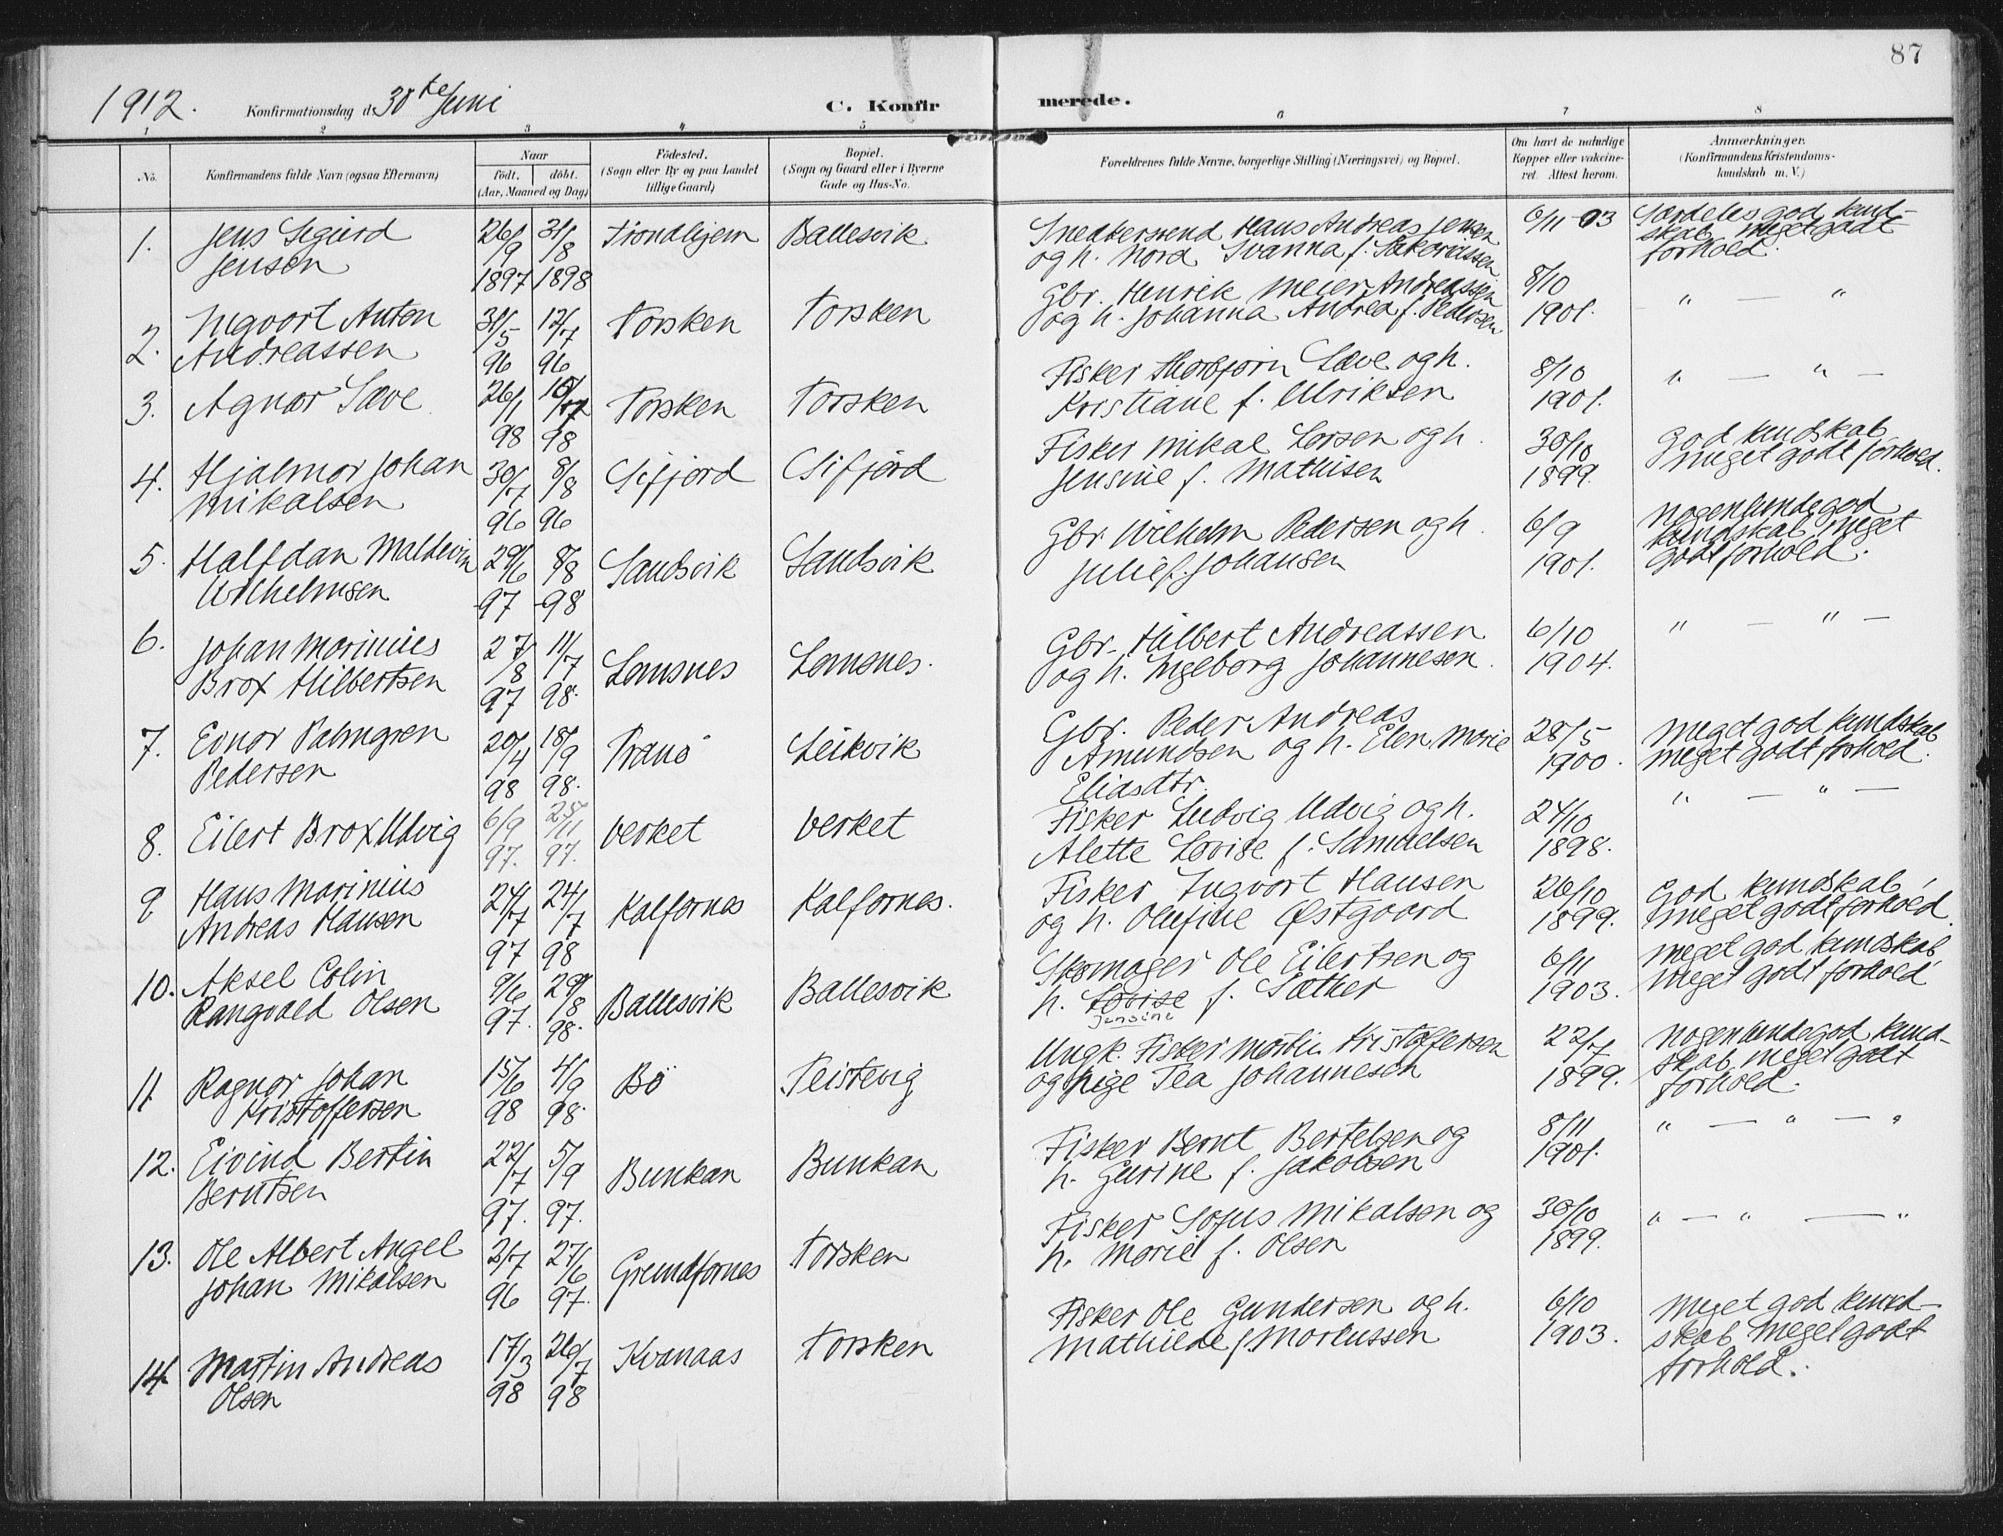 87
1912. Konfirmationsdag d. 30te Juni
C. Konfirmerede.
1 2 3 4 5 6 7 8
No.
Konfirmandens fulde Navn (ogsaa Efternavn)
Naar
født. døbt.
(Aar, Maaned og Dag)
Fødested.
(Sogn eller By og paa Landet
tillige Gaard)
Bopæl.
(Sogn og Gaard eller i Byerne
Gade og Hus-No.
Forældrenes fulde Navne, borgerlige Stilling (Næringsvei) og Bopæl.
Om havt de naturlige
Kopper eller vakcine-
ret. Attest herom.
Anmærkninger.
(Konfirmandens Kristendoms-
kundskab m. V.)
1. Jens Sigurd Jensen 26/9 1897 31/8 1898 Trondhjem Ballesvik Snedkersvend Hans Andreas Jensen
og h. Nord Ivanna f. Sakariassen 6/11 03 Særdeles god kund-
skab meget godt
forhold.
2. Ingvart Anton Andreassen 31/5 96 12/7 96 Torsken Torsken Gbr. Henrik Meier Andreassen
og h. Johanna Andrea f. Pedersen 8/10 1901. " — "
3. Agnar Sæve 26/1 98 10/7 98 Torsken Torsken Fisker Thorbjørn Sæve og h.
Kristiane f. Ulriksen 8/10 1901. " — " —
4. Hjalmar Johan Mikalsen 30/7 96 8/8 96 Sifjord Sifjord Fisker Mikal Larsen og h.
Jensine f. Mathisen 30/10 1899. God kundskab,
meget godt forhold.
5. Halfdan Maldevin Wilhelmsen 29/6 -97 8/8 -98 Sandsvik Sandsvik Gbr. Wilhelm Pedersen og h.
Julie f. Johansen 6/9 1901. Nogenlunde god
kundskab, meget
godt forhold.
6. Johan Marinius Brox Hilbertsen 27/8 97 11/7 98. Lamsnes Lamsnes. Gbr. Hilbert Andreassen
og h. Ingeborg Johannesen. 6/10 1904. " — " —
7. Einar Palmgren Pedersen 20/4 98 18/9 98. Tranö Leikvik Gbr. Peder Andreas
Amundsen og h. Elen Marie
Eliasdtr. 28/5 1900. Meget god kundskab
meget godt forhold.
8. Eilert Brox Udvig 6/9 97. 25/11 97. Verket Verket Fisker Ludvig Udvig og h.
Alette Lovise f. Samuelsen 24/10 1898. " — " —
9 Hans Marinius Andreas Hansen 24/7 97 24/7 98 Kalfarnes Kalfarnes. Fisker Ingvart Hansen
og h. Olufine Østgaard 26/10 1899. God kundskab,
meget godt forhold.
10. Aksel Colin Rangvald Olsen 9/6 97. 29/8 98. Ballesvik Ballesvik Skomager Ole Eilertsen og
h. Lovise f. Sæther
Jensine 6/11 1903. Meget god kundskab,
meget godt forhold
11. Ragnar Johan Kristoffersen 15/6 98 4/9 98. Bö Teistevig Ungk. Fisker Martin Kristoffersen
og pige Tea Johannesen 22/7 1899. Nogenlunde god kund-
skab, meget godt
forhold.
12. Eivind Bertin Berntsen 22/7 97. 5/9 97. Bunkan Bunkan Fisker Bernt Bertelsen og
h. Gurine f. Jakobsen 8/11 1901. " — " — "
13. Ole Albert Angel Johan Mikalsen 2/7 96 27/6 97. Grundfarnes Torsken Fisker Sofus Mikalsen og
h. Marie f. Olsen 30/10 1899. " — " — "
14. Martin Andreas Olsen 17/3 98 26/7 98 Kvanaas Torsken Fisker Ole Gundersen og h.
Mathilde f. Markussen 6/10 1903. Meget god kund-
skab, meget godt
forhold.